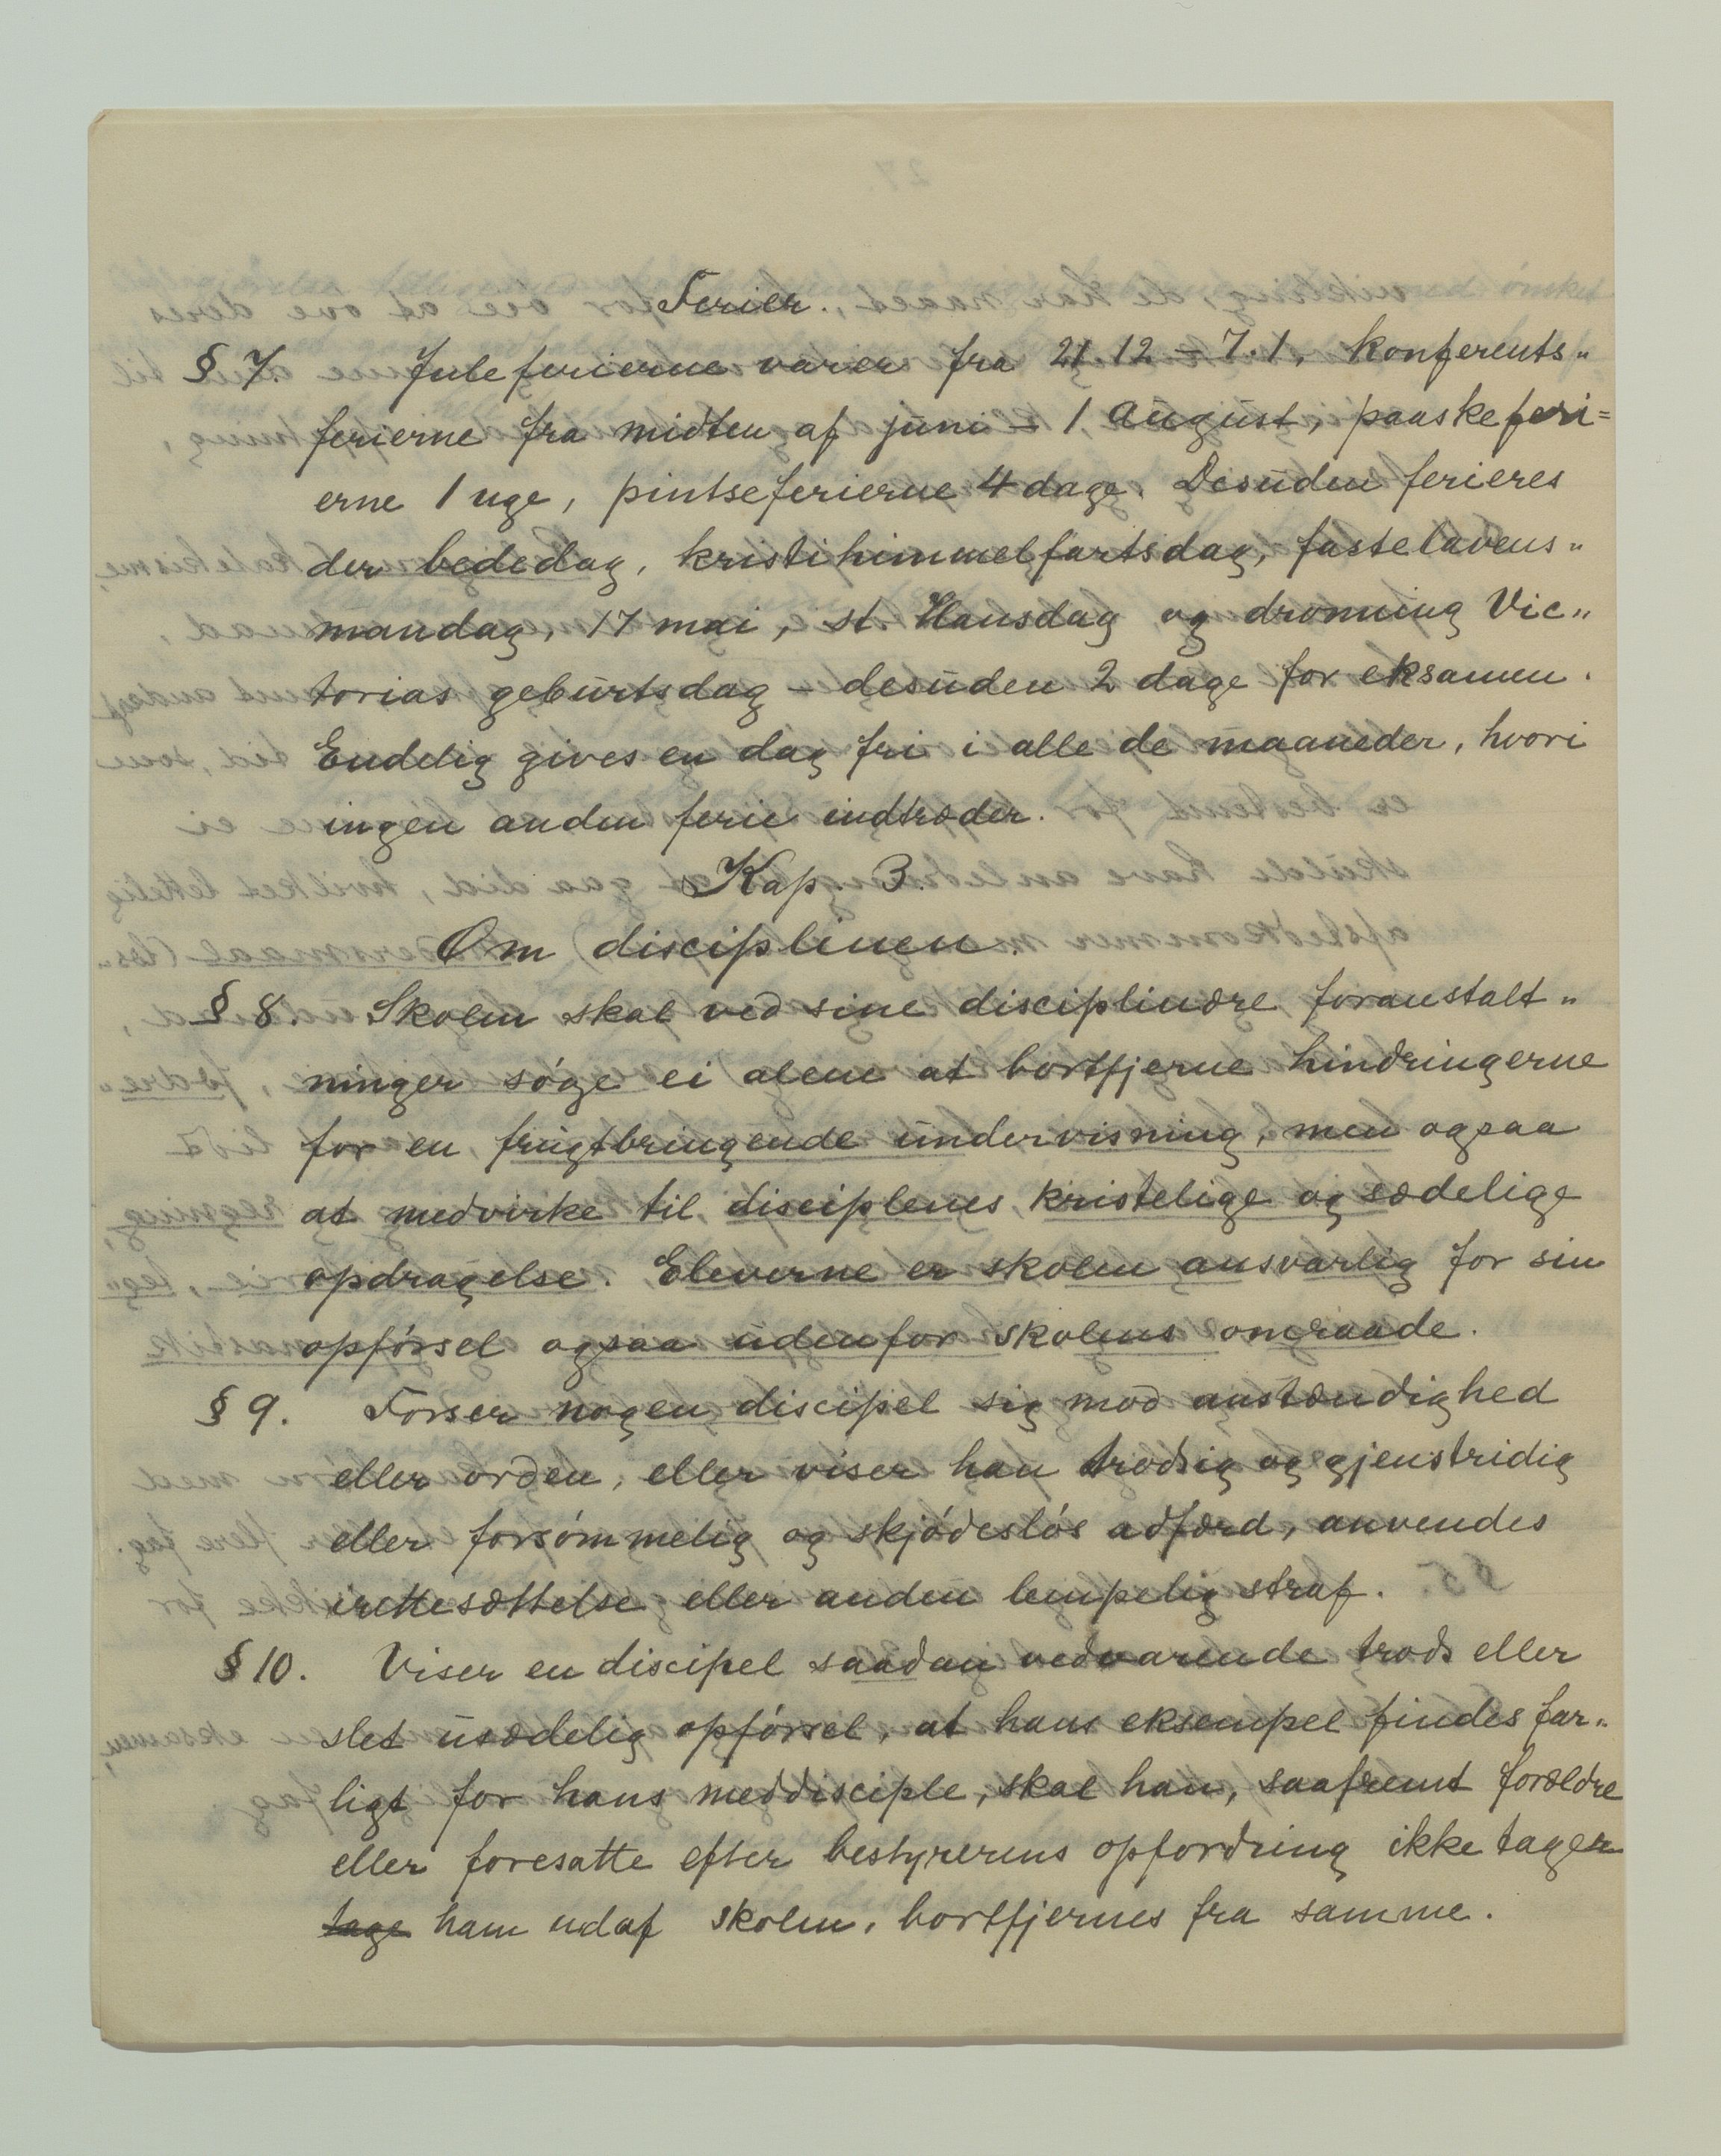 Ferier.
§ 7. Juleferierne varer fra 21.12 - 7.1, konferents„
ferierne fra midten af juni - 1 August, paaskeferi=
erne 1 uge, pintseferierne 4 dage. Desuden ferieres
der bededag, kristihimmelfartsdag, fastelavens„
mandag, 17 mai, st. Hansdag og dronning Vic„
torias geburtsdag - desuden 2 dage for eksamen.
Endelig gives en dag fri i alle de maaneder, hvori
ingen anden ferie indtræder.
Kap. 3.
Om disciplinen.
§ 8. Skolen skal ved sine disciplinære foranstalt„
ninger søge ei alene at bortfjerne hindringerne
for en frugtbringende undervisning, men ogsaa
at medvirke til disciplenes kristelige og sædelige
opdragelse. Eleverne er skolen ansvarlig for sin
opførsel ogsaa udenfor skolens omraade.
§ 9. Forser nogen discipel sig mod anstændighed
eller orden, eller viser han trodsig og gjenstridig
eller forsømmelig og skjødesløs adfærd, anvendes
irettesættelse eller anden lempelig straf.
§ 10. Viser en discipel saadan vedvarende trods eller
slet usædelig opførsel, at hans eksempel findes far„
ligt for hans meddisciple, skal han, saafremt forældre
eller foresatte efter bestyrerens opfordring ikke tager
tage ham udaf skolen, bortfjernes fra samme.